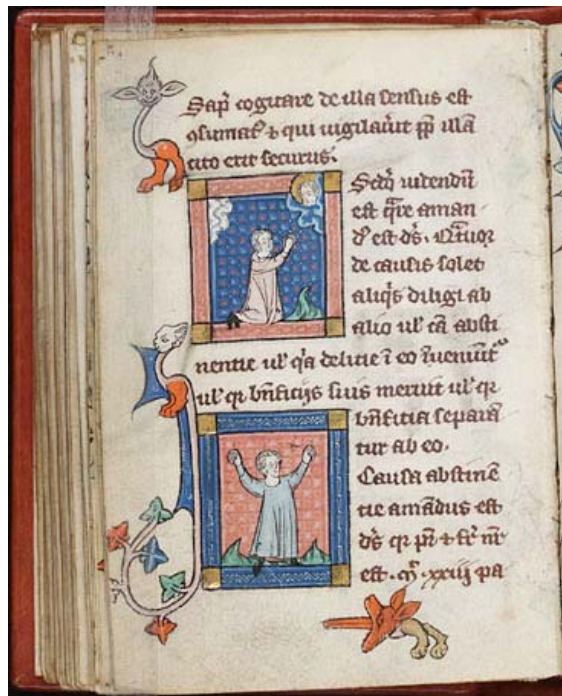 Sap̄ cogitare de illa sensus est
ꝯsumatꝰ ⁊ qui uigilauīt ꝓp̄ illā
cito erit securus.
uidendū
est q̄re aman
dꝰ est ds̄. Qͣtuor
de causis solet
aliq̄s diligi ab
alio ul̓ cā absti
nentie ul̓ qͥa delitie ī eo īueniūtᷣ
ul̓ qꝛ bn̄ficijs suis meruit ul̓ qꝛ
bn̄fitia separā
tur ab eo.
Causa abstinē
tie amādus est
ds̄ qꝛ pr̄ ⁊ fr̄ nr̄
est. xxiij pa